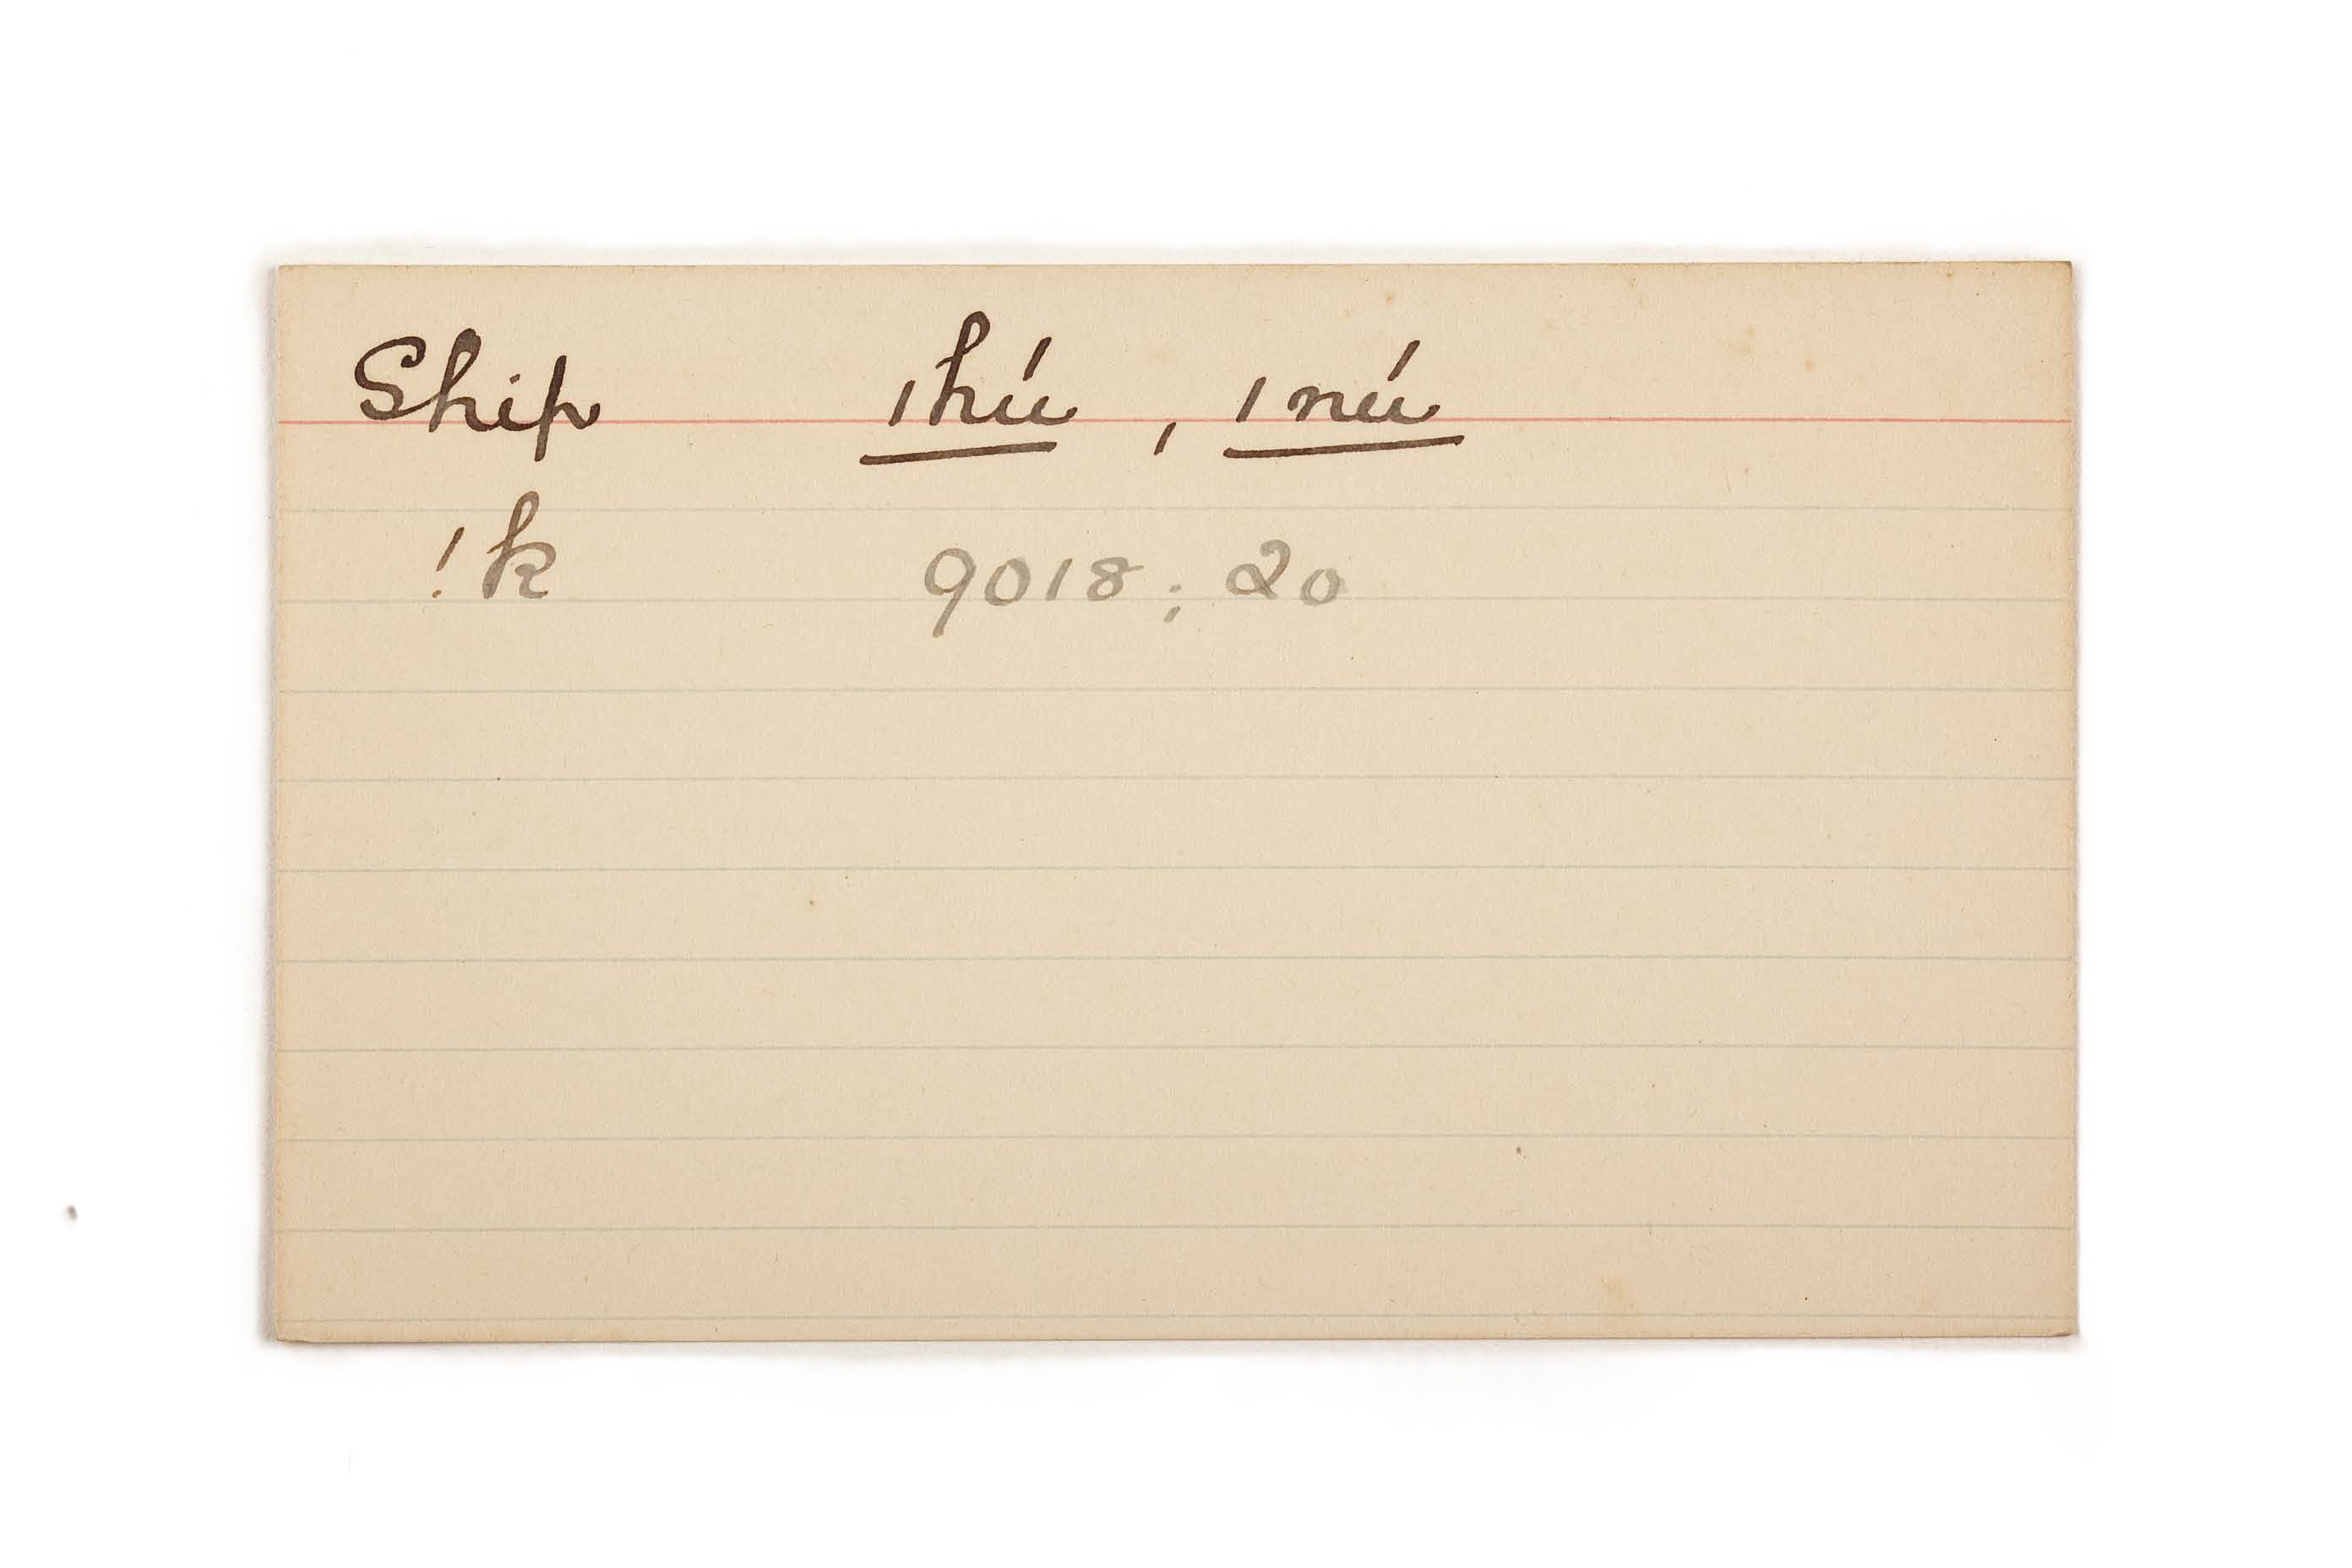 Ship ıhú , ınú
!k 9018; 20